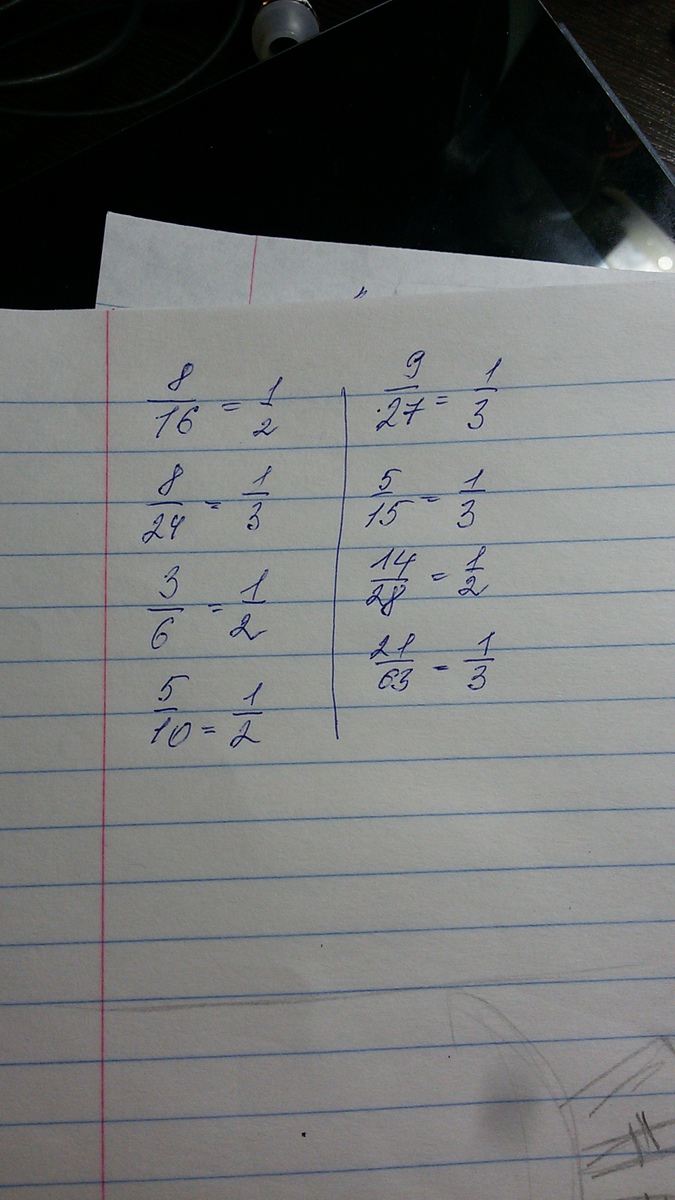 8/16 = 1/2
8/24 = 1/3
3/6 = 1/2
5/10 = 1/2
9/27 = 1/3
5/15 = 1/3
14/28 = 1/2
21/63 = 1/3